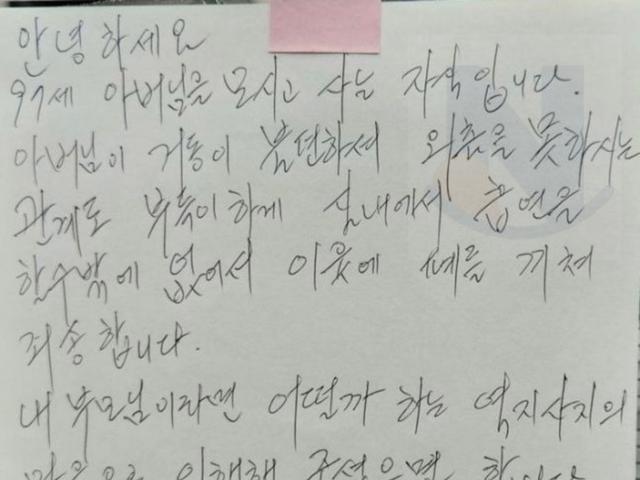 안녕하세요
97세 아버님을 모시고 사는 자식입니다.
아버님이 거동이 불편하셔 외출을 못하시는
관계로 부득이하게 실내에서 흡연을
할수밖에 없어서 이웃에 폐를 끼쳐
죄송합니다.
내 부모님이라면 어떨까 하는 역지사지의